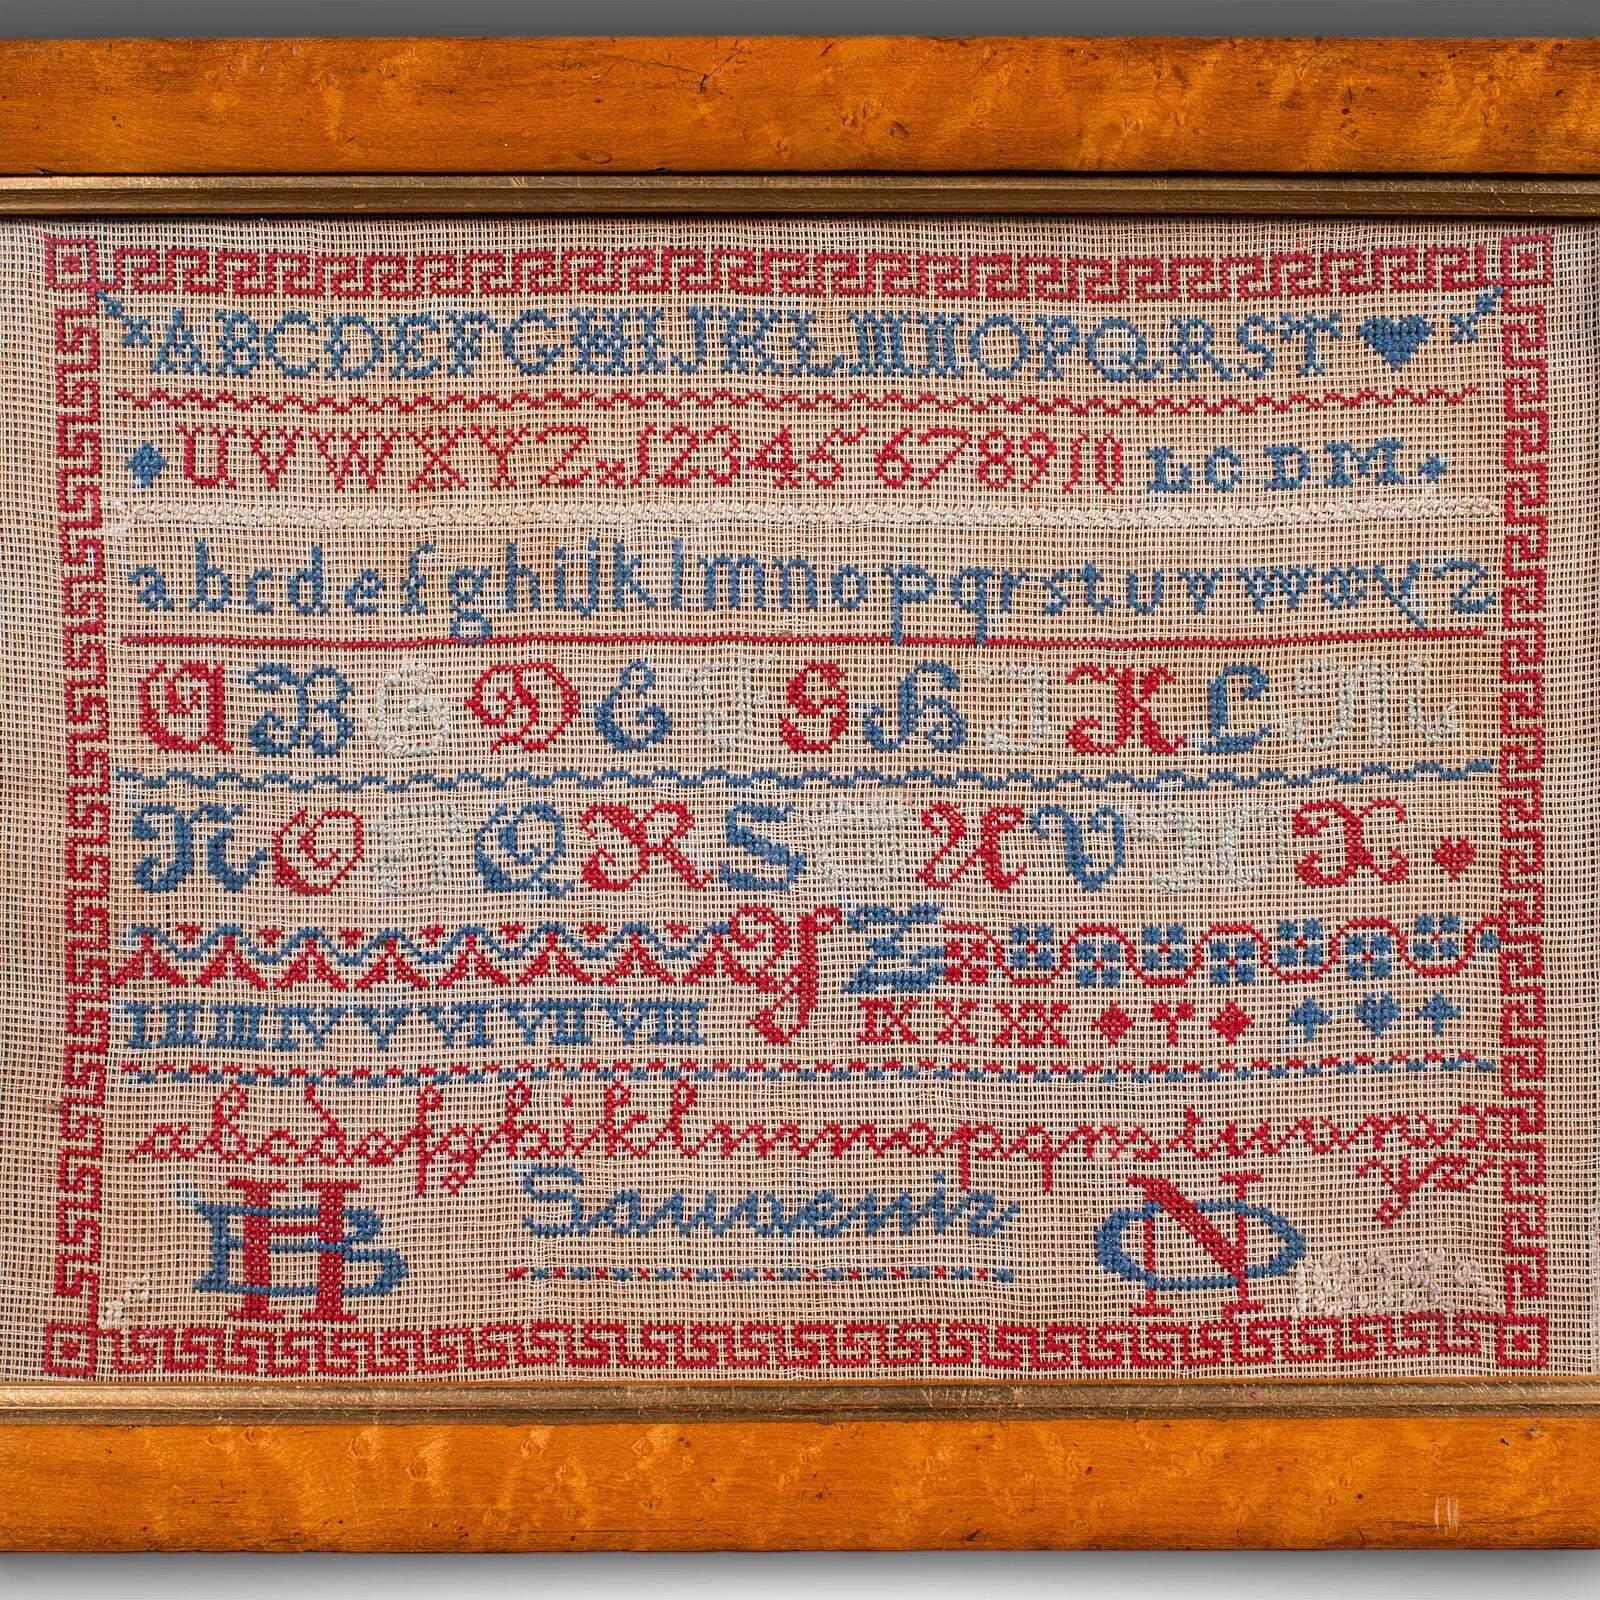 ABCDEFGHIJKLMNOPQRST
UVWXYZ.12345 678910 LCDM.
abcdefghijklmnopqrstuvwxyz
ABCDEFGHIJKLM
NOPQRSTUVWX
YZ
I II III IV V VI VII VIII IX X XX
abcdefghiklmnopqrstuvwx
yz
Souvenir
HB NO